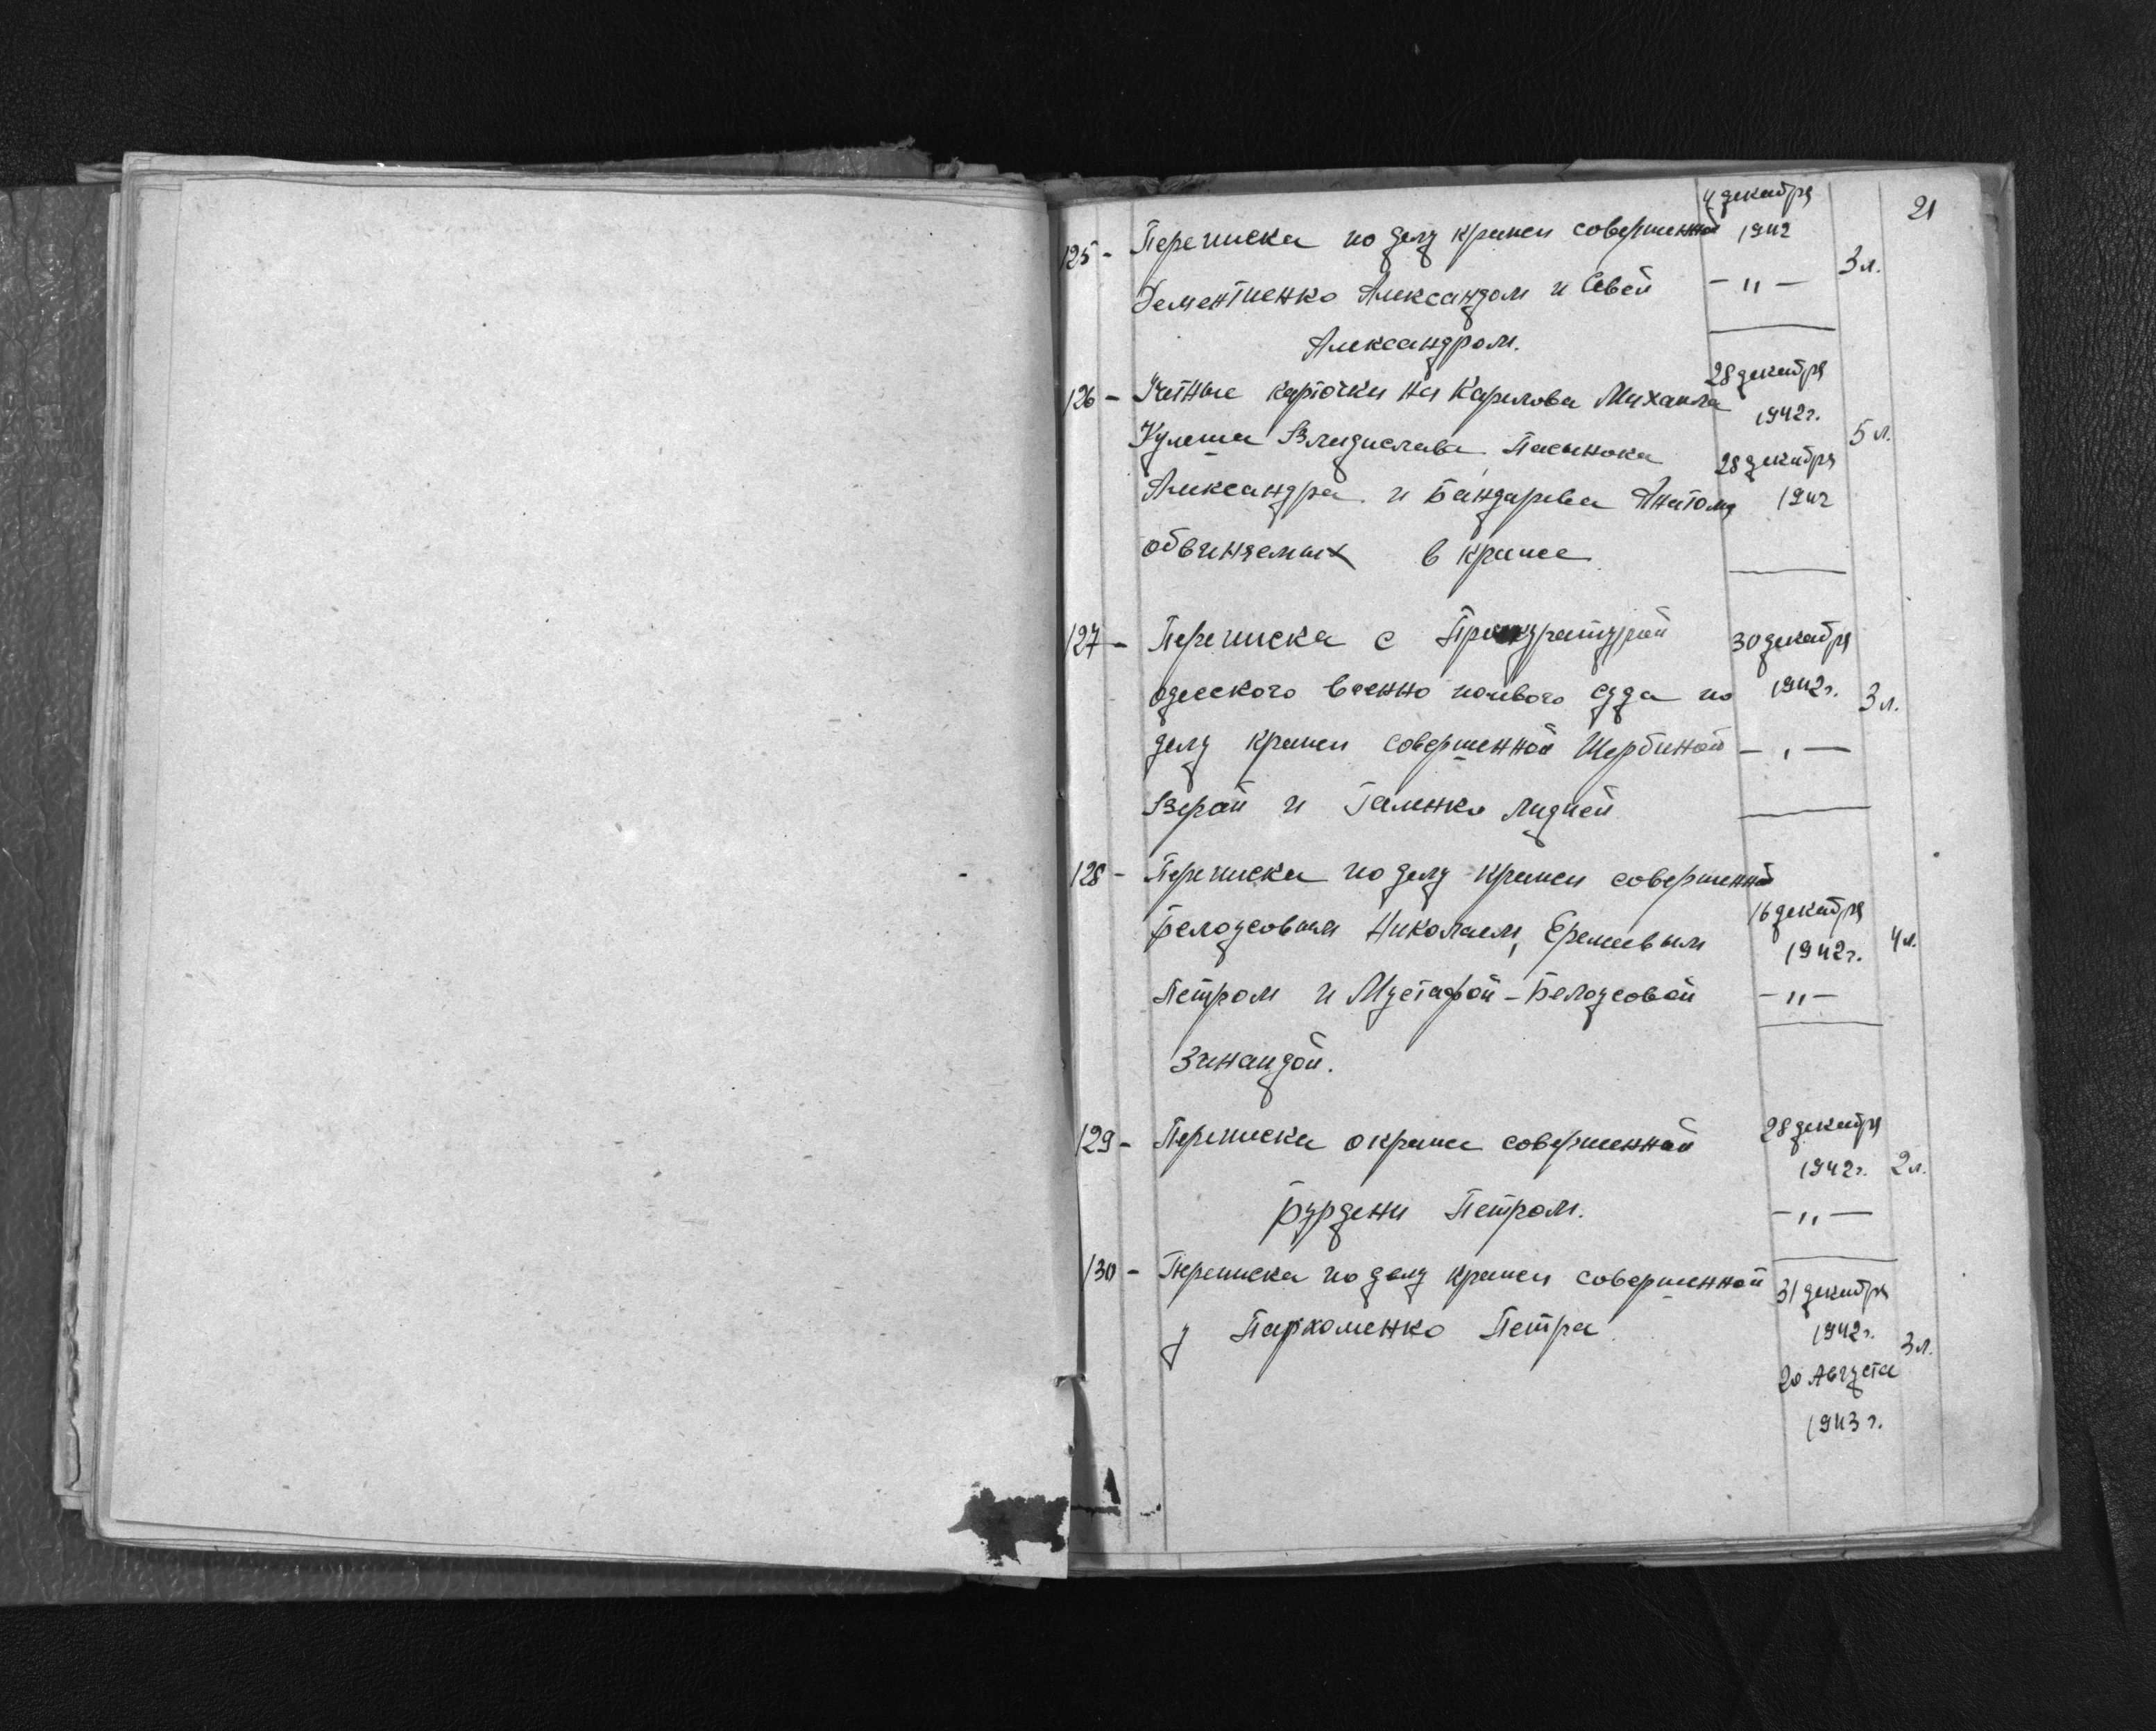 21
4 декабря
125 - Переписка по делу кражи совершенной 1942
Дементиенко Александом и Савой - " - 3 л.
Александром.
28 декабря
126 - Учетные карточки на Карилова Михаила 1942 г.
Кулеша Владислава, Пасынока 28 декабря 5 л.
Александра и Бандарева Анатоля 1942
обвиняемых в краже
127 - Переписка с Прокуратурой 30 декабря
одесского военно полевого суда по 1942 г. 3 л.
делу кражи совершенной Щербиной - " -
Верой и Галенко Лидией
128 - Переписка по делу кражи совершенной
Белоусовым Николаем, Еремеевым 16 декабря 1942 г. 4 л.
Петром и Мустафой - Белоусовой - " -
Зинаидой.
129 - Переписка о краже совершенной 28 декабря
1942 г. 2 л.
Бурдени Петром. - " -
130 - Переписка по делу кражи совершенной 31 декабря
у Пархоменко Петра 1942 г. 3 л.
20 Августа
1943 г.